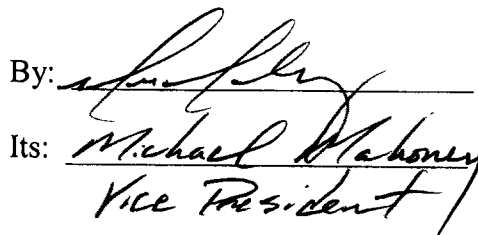 By:
Its: Michael Mahoney
Vice President